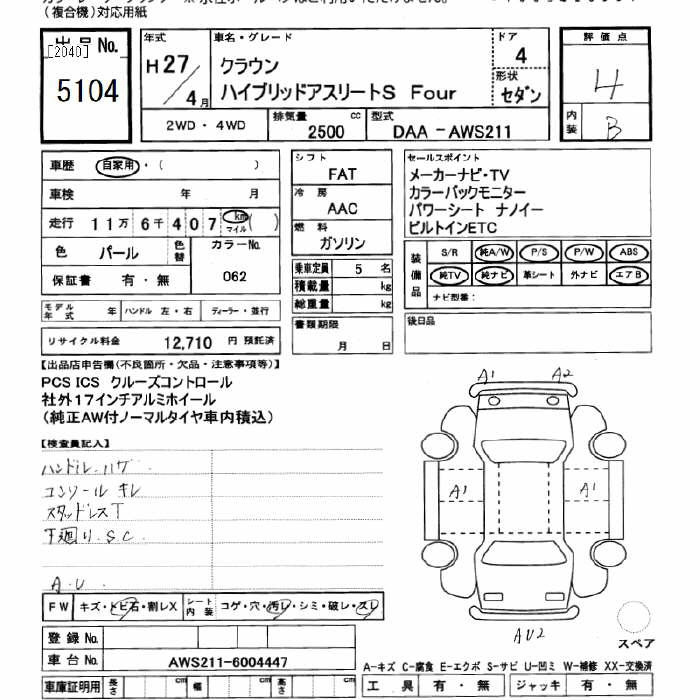 (複合機)対応用紙
出品No.
[2040]
5104
年式
H27/4月
車名・グレード
クラウン
ハイブリッドアスリートS Four
ドア
4
形状
セダン
評価点
4
内装
B
2WD・4WD
排気量
2500
cc
型式
DAA-AWS211
車歴 自家用・( )
車検 年 月
走行 11万 6千 407 km マイル ( )
色 パール
色替
カラーNo.
062
保証書 有・無
モデル年式 年 ハンドル 左・右 ディーラー・並行
リサイクル料金 12,710 円 預託済
シフト
FAT
冷房
AAC
燃料
ガソリン
乗車定員 5 名
積載量 kg
総重量 kg
書類期限
月 日
セールスポイント
メーカーナビ・TV
カラーバックモニター
パワーシート ナノイー
ビルトインETC
装備品
S/R 純A/W P/S P/W ABS
純TV 純ナビ 革シート 外ナビ エアB
ナビ型番:
後日品
【出品店申告欄(不良箇所・欠品・注意事項等)】
PCS ICS クルーズコントロール
社外17インチアルミホイール
(純正AW付ノーマルタイヤ車内積込)
【検査員記入】
ハンドル ハゲ
コンソール キレ
スタッドレスT
下廻り.S.C.
A.U.
FW キズ・トビ石・割レX
シート内装 コゲ・穴・汚レ・シミ・破レ・スレ
登録No.
車台No. AWS211-6004447
車庫証明用 長さ cm 幅 cm 高さ cm
A1 A2
A1 A1
AU2
スペア
A-キズ C-腐食 E-エクボ S-サビ U-凹ミ W-補修 XX-交換済
工具 有・無 ジャッキ 有・無